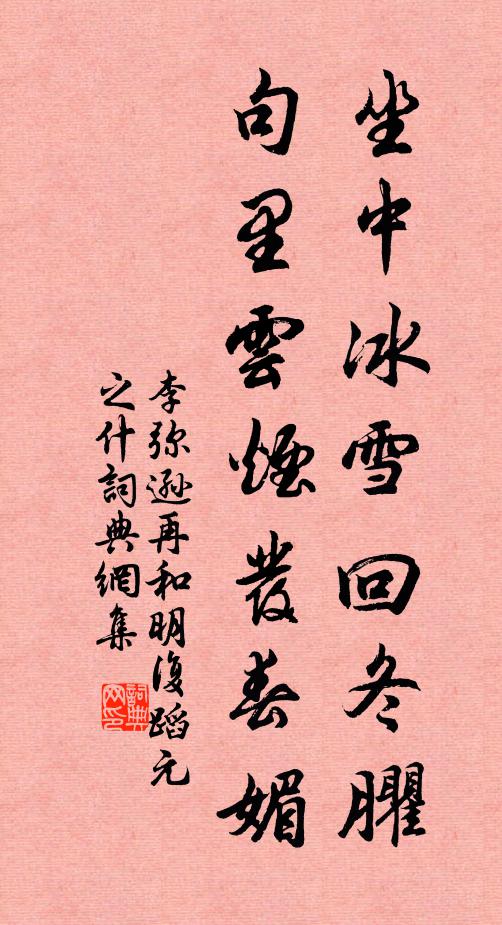 坐中冰雪回冬臞
句里雲煙發春媚
李弥遜再和明復蹈元
之什詞典網集
詞典网印